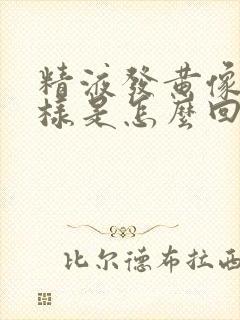 精液發黃像
樣是怎麼回
比尔德布拉西